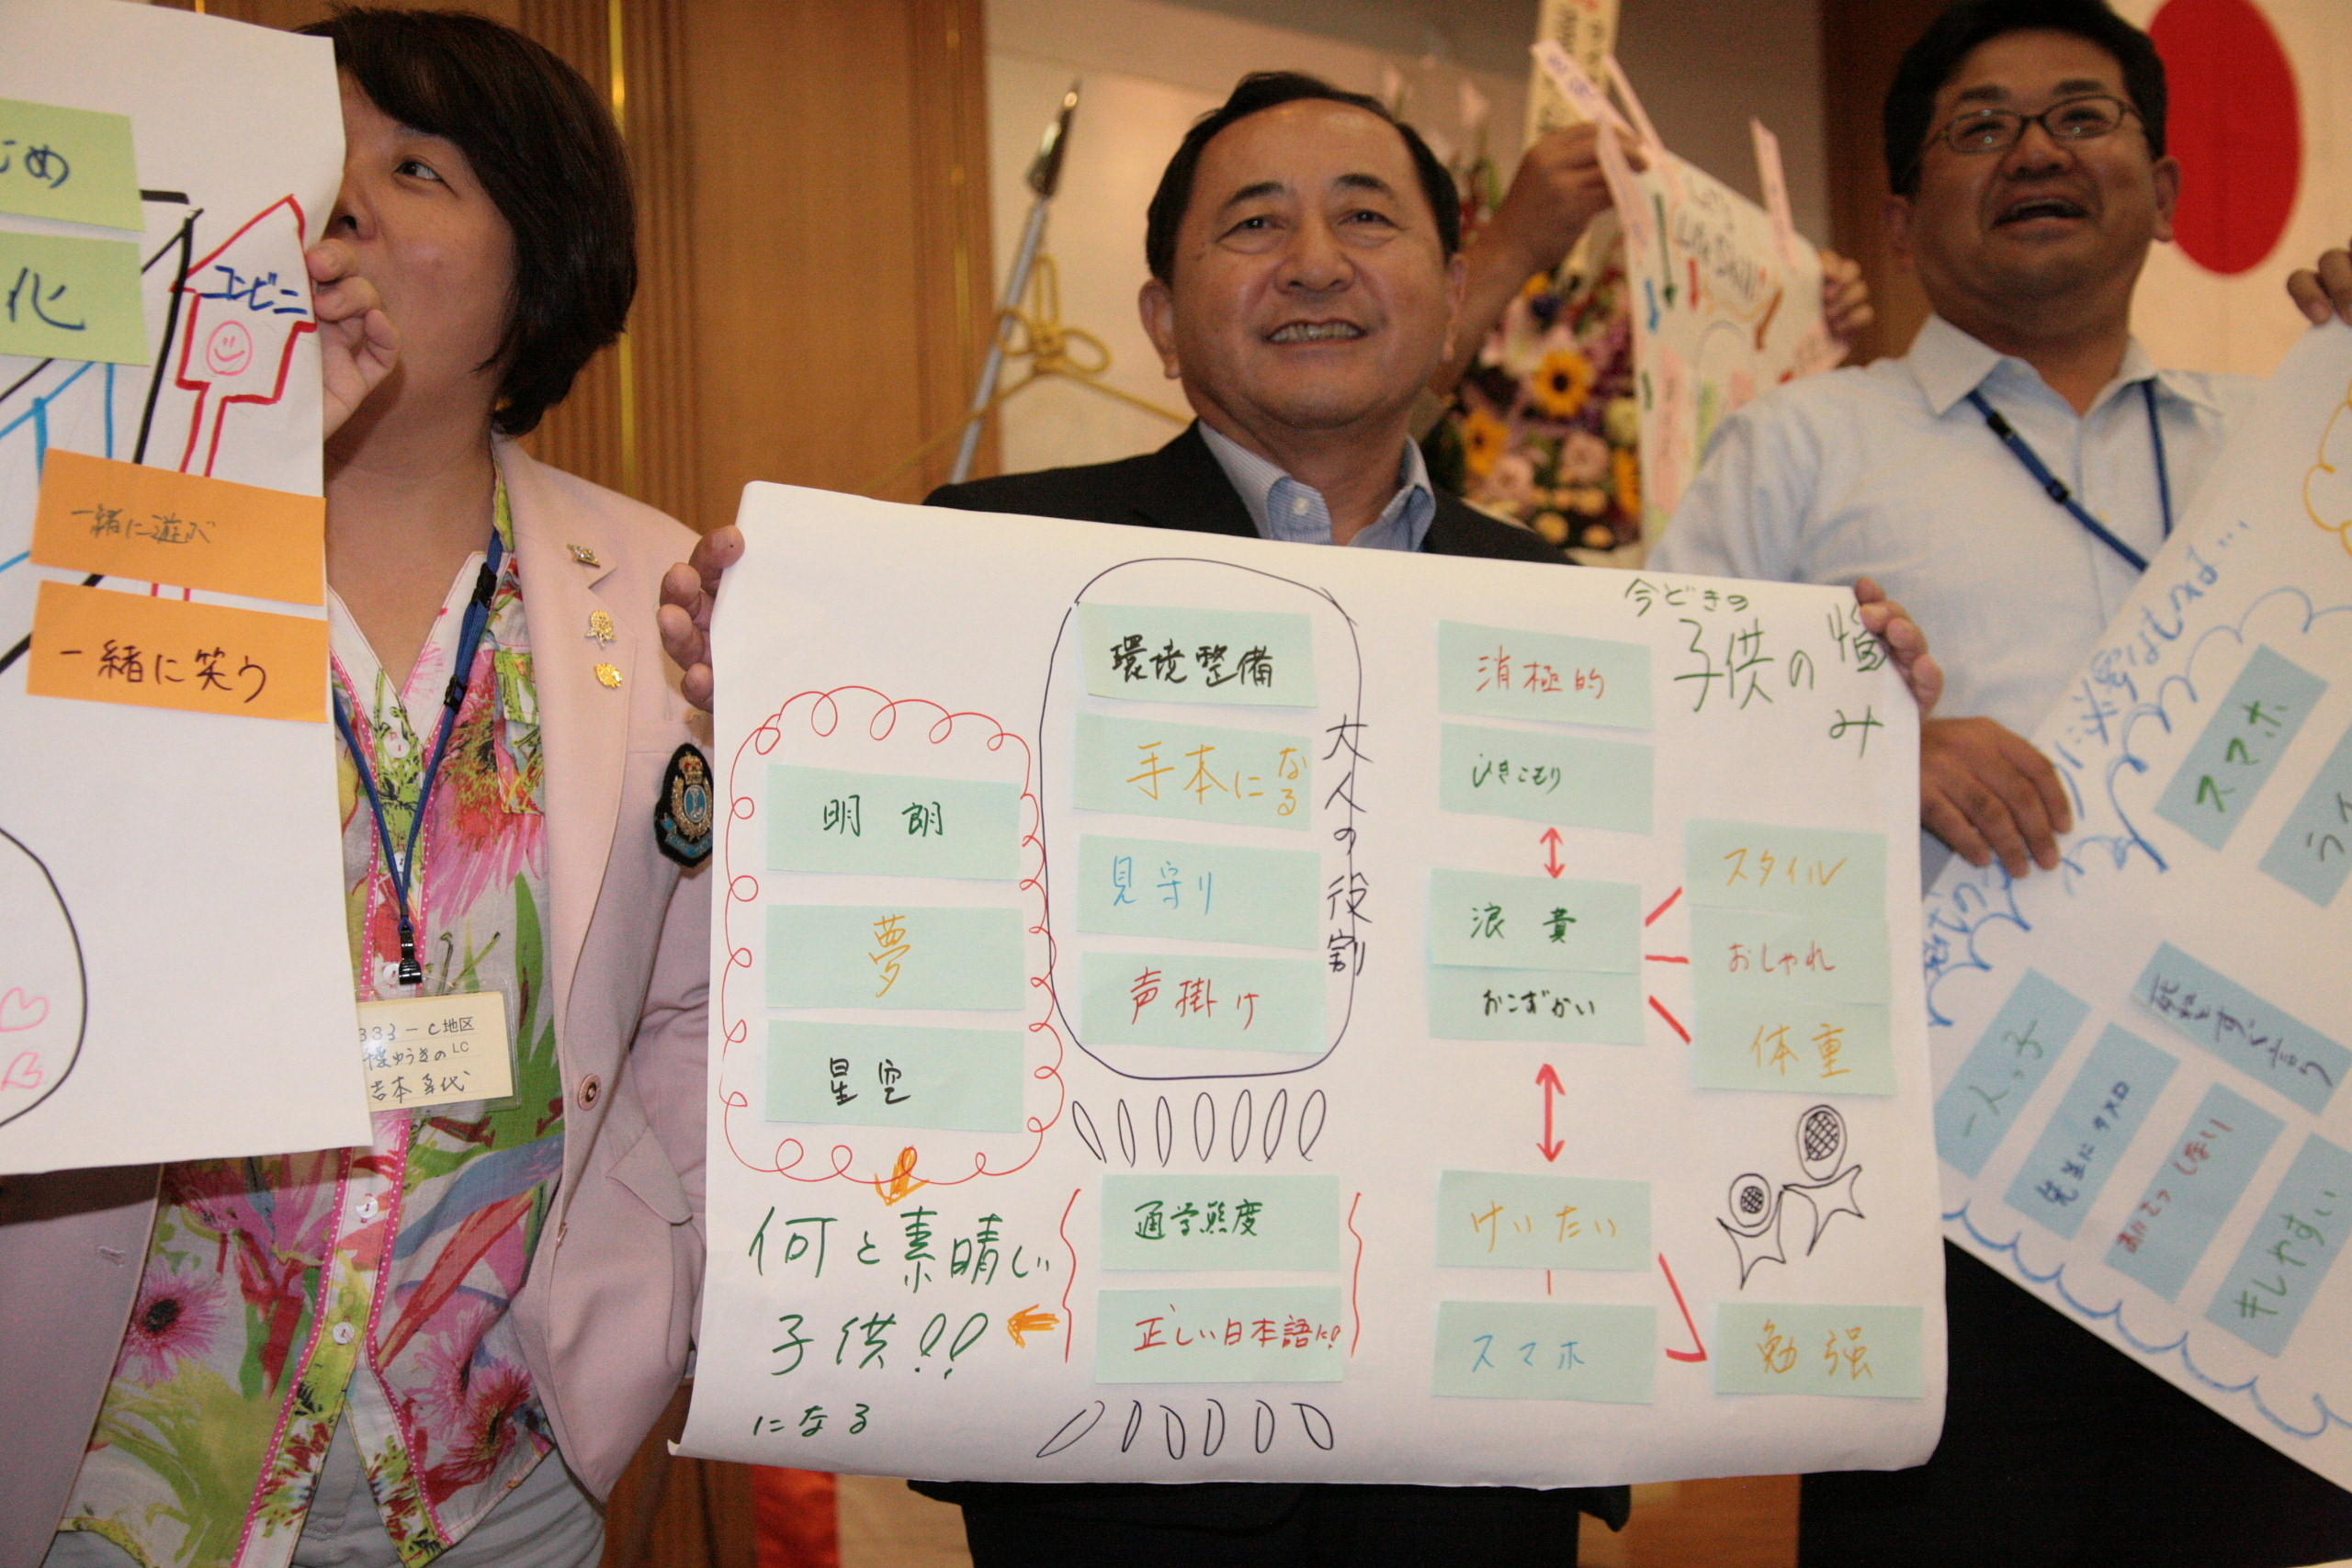 じめ
化
コンビニ
一緒に遊ぶ
一緒に笑う
333-C地区
LC
Life Skill!
今どきの
子供の悩み
消極的
ひきこもり
浪費
おこずかい
スタイル
おしゃれ
体重
けいたい
スマホ
勉強
大人の役割
環境整備
手本になる
見守り
声掛け
通学態度
正しい日本語に!
明朗
夢
星空
何と素晴しい
子供!!
になる
スマホ
死ねとすぐ言う
一人っ子
先生にタメ口
キレやすい